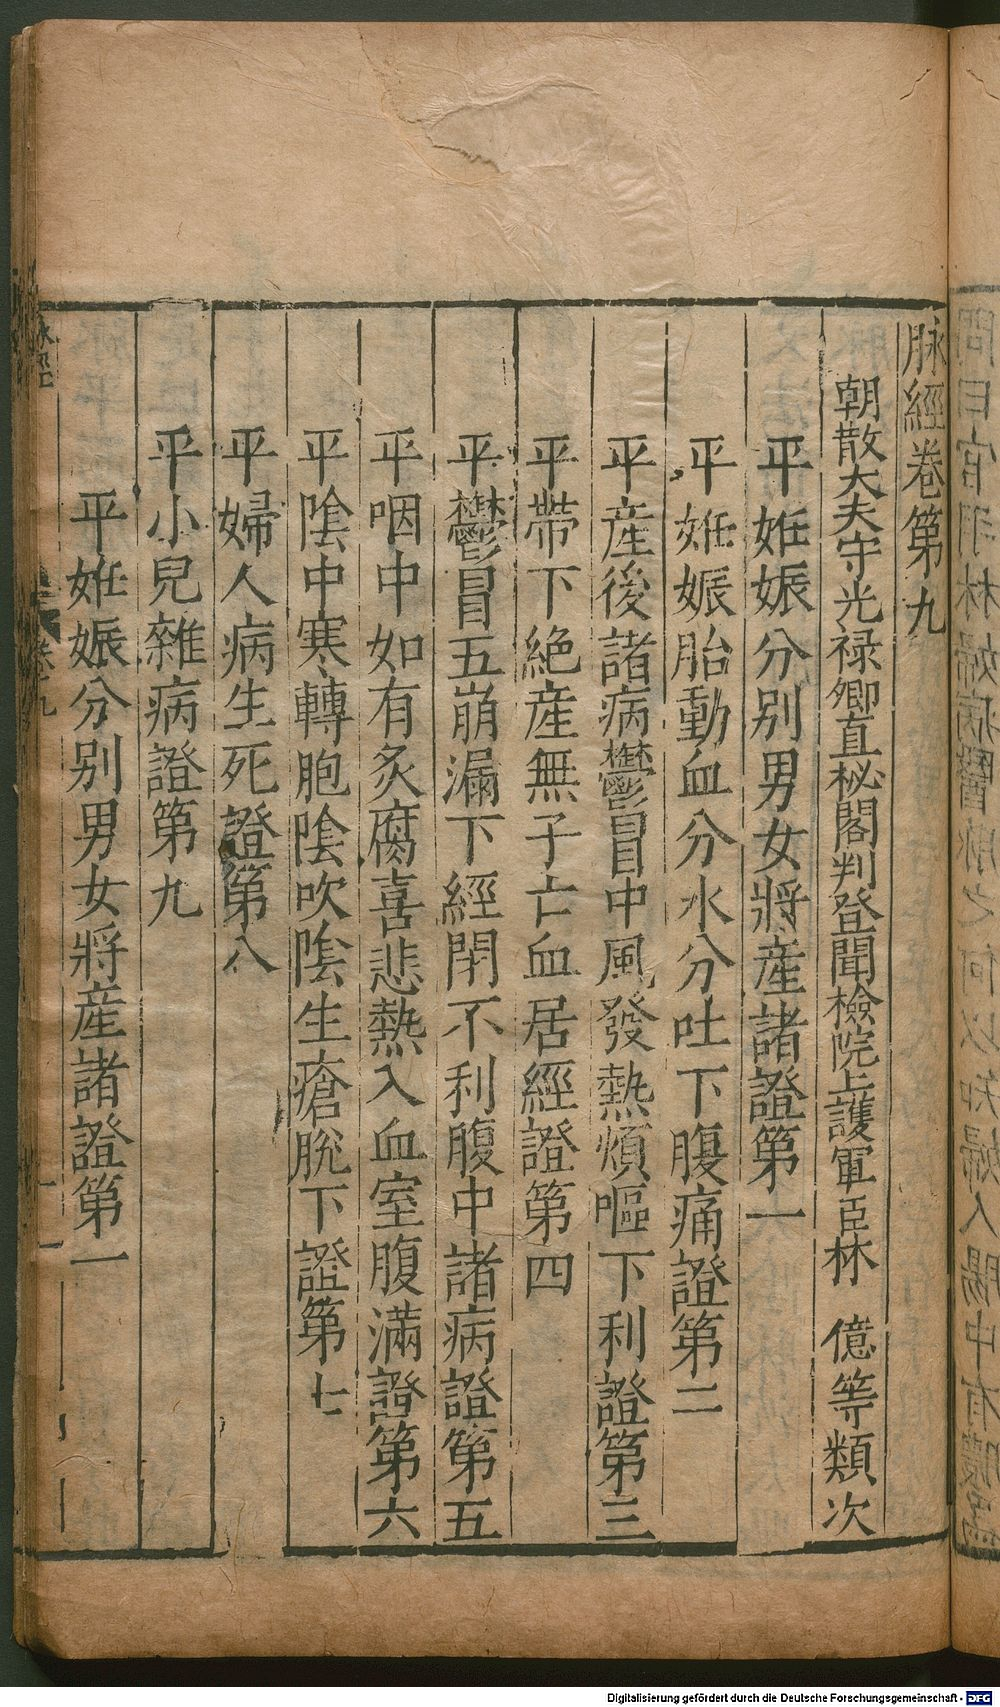 脉經卷第九
朝散大夫守光禄卿直祕閣判登聞檢院上護軍臣林 億等類次
平妊娠分别男女將産諸證第一
平妊娠胎動血分水分吐下腹痛證第二
平産後諸病鬱冒中風發熱煩嘔下利證第三
平帶下絶産無子亡血居經證第四
平鬱冒五崩漏下經閉不利腹中諸病證第五
平咽中如有炙腐喜悲熱入血室腹滿證第六
平陰中寒轉胞陰吹陰生瘡脫下證第七
平婦人病生死證第八
平小兒雜病證第九
平妊娠分别男女將産諸證第一
脉經
九
Digitalisierung gefördert durch die Deutsche Forschungsgemeinschaft - DFG